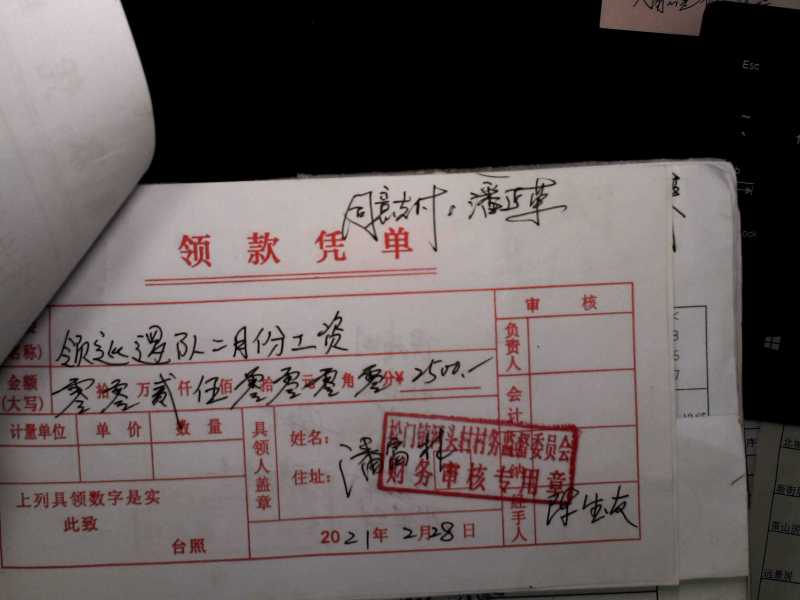 同意支付。潘正革
领款凭单
审核
名称)
领巡逻队二月份工资
负责人
金额
(大写)
零拾零万贰仟伍佰零拾零元零角零分¥2500.—
会计
计量单位 单价 数量
具领人盖章
姓名:
住址:
潘富
松门镇 头村村务监督委员会
财务审核专用章
上列具领数字是实
此致
台照
2021年2月28日
经手人
陈生友
Esc